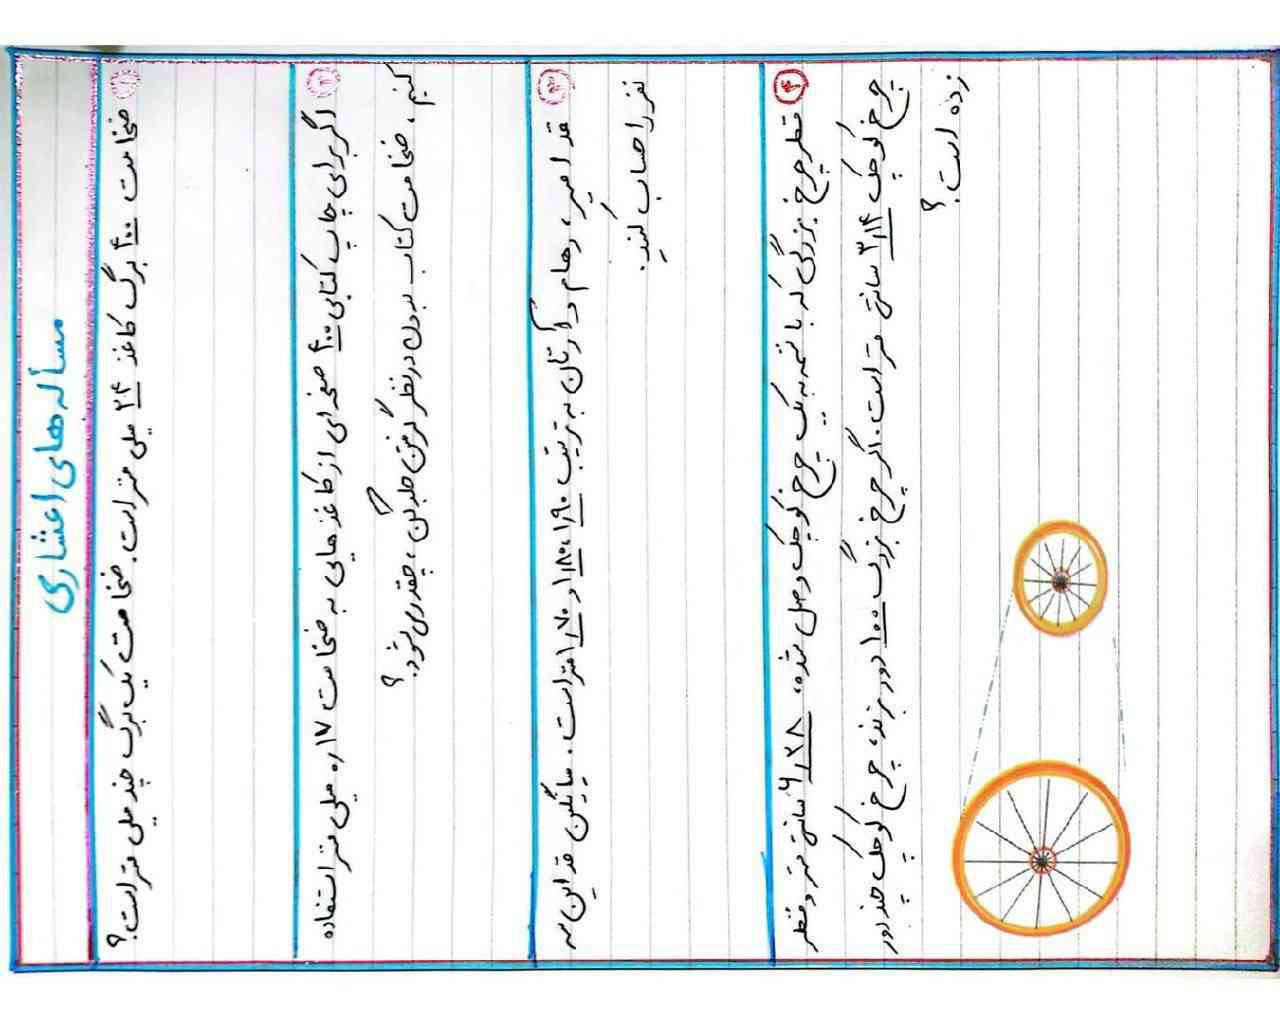 مسأله های اعشاری
۱ ضخامت ۴۰۰ برگ کاغذ ۲۴ میلی متر است. ضخامت یک برگ چند میلی متر است؟
۲ اگر برای چاپ کتابی ۴۰۰ صفحه ای از کاغذ هایی به ضخامت ۰٫۱۷ میلی متر استفاده
کنیم، ضخامت کتاب بدون در نظر گرفتن جلد آن، چقدر می شود؟
۳ قد امیر، رهام و آرتان به ترتیب ۱٫۹۰، ۱٫۸۰ و ۱٫۷۰ متر است. میانگین قد این سه
نفر را حساب کنید.
۴ قطر چرخ بزرگی که با تسمه به یک چرخ کوچک وصل شده، ۶٫۲۸ سانتی متر و قطر
چرخ کوچک ۳٫۱۴ سانتی متر است. اگر چرخ بزرگ ۱۰۰ دور بزند، چرخ کوچک چند دور
زده است؟